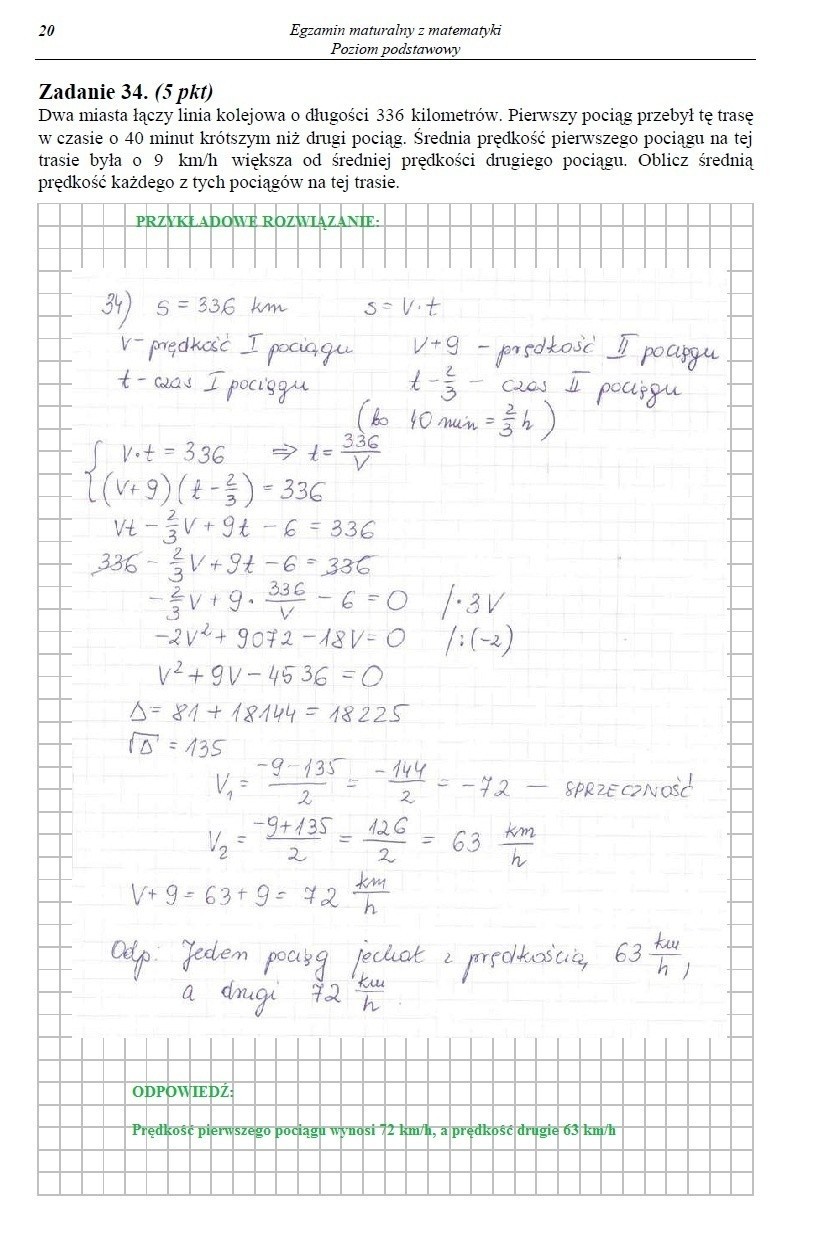 20
Egzamin maturalny z matematyki
Poziom podstawowy
Zadanie 34. (5 pkt)
Dwa miasta łączy linia kolejowa o długości 336 kilometrów. Pierwszy pociąg przebył tę trasę
w czasie o 40 minut krótszym niż drugi pociąg. Średnia prędkość pierwszego pociągu na tej
trasie była o 9 km/h większa od średniej prędkości drugiego pociągu. Oblicz średnią
prędkość każdego z tych pociągów na tej trasie.
PRZYKŁADOWE ROZWIĄZANIE:
34) S = 336 km S = V·t
V - prędkość I pociągu V+9 - prędkość II pociągu
t - czas I pociągu t - 2/3 - czas II pociągu
(bo 40 min = 2/3 h)
{ V·t = 336 ⇒ t = 336/V
(V+9)(t - 2/3) = 336
Vt - 2/3 V + 9t - 6 = 336
336 - 2/3 V + 9t - 6 = 336
- 2/3 V + 9 · 336/V - 6 = 0 /·3V
-2V² + 9072 - 18V = 0 /:(-2)
V² + 9V - 4536 = 0
Δ = 81 + 18144 = 18225
√Δ = 135
V₁ = (-9-135)/2 = -144/2 = -72 — SPRZECZNOŚĆ
V₂ = (-9+135)/2 = 126/2 = 63 km/h
V+9 = 63+9 = 72 km/h
Odp: Jeden pociąg jechał z prędkością 63 km/h,
a drugi 72 km/h.
ODPOWIEDŹ:
Prędkość pierwszego pociągu wynosi 72 km/h, a prędkość drugie 63 km/h